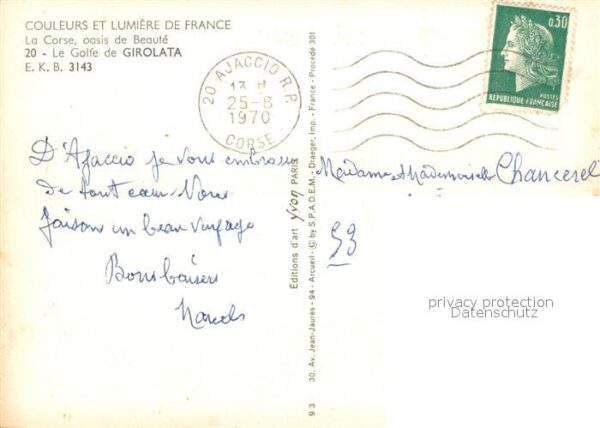 COULEURS ET LUMIÈRE DE FRANCE
La Corse, oasis de Beauté
20 - Le Golfe de GIROLATA
E. K. B. 3143
20 AJACCIO R.P.
13 H
25-8
1970
CORSE
0,30
POSTES
REPUBLIQUE FRANÇAISE
D'Ajaccio je vous embrasse
de tout cœur. Nous
faisons un beau voyage
Bons baisers
Editions d'art yvon PARIS
30, Av. Jean-Jaurès - 94 - Arcueil - © by S.P.A.D.E.M. - Draeger, Imp. - France - Procédé 301
93
Madame & Mademoiselle Chancerel
53
privacy protection
Datenschutz